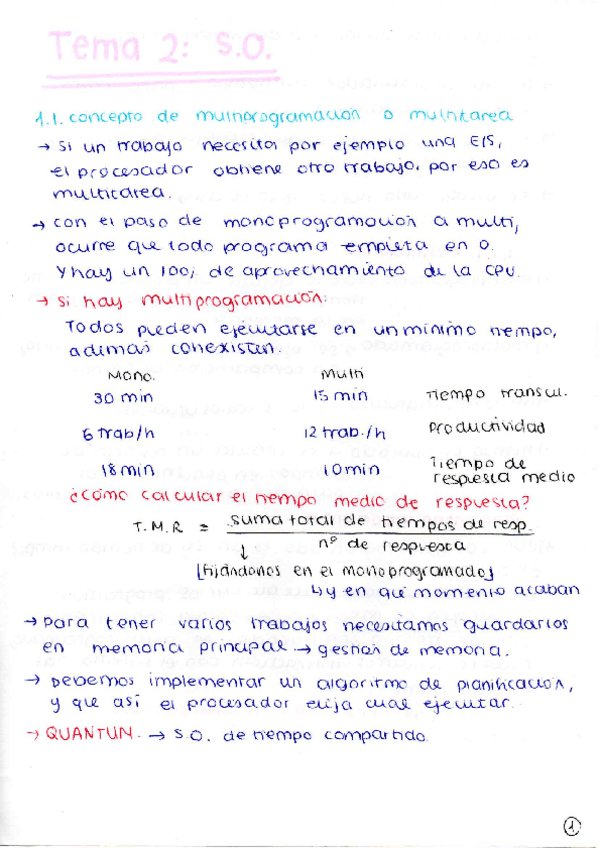 Tema 2: S.O.
1.1. concepto de multiprogramación o multitarea
→ si un trabajo necesita por ejemplo una E/S,
el procesador obtiene otro trabajo, por eso es
multitarea.
→ con el paso de monoprogramación a multi,
ocurre que todo programa empieza en 0.
Y hay un 100% de aprovechamiento de la CPU.
→ si hay multiprogramación:
Todos pueden ejecutarse en un mínimo tiempo,
además cohexistan.
Mono. Multi
30 min 15 min Tiempo transcu.
6 trab/h 12 trab./h Productividad
18 min 10 min Tiempo de
respuesta medio
¿cómo calcular el tiempo medio de respuesta?
T.M.R = suma total de tiempos de resp.
nº de respuesta
↓
[fijándonos en el monoprogramado]
↳ y en qué momento acaban
→ para tener varios trabajos necesitamos guardarlos
en memoria principal → gestión de memoria.
→ Debemos implementar un algoritmo de planificación,
y que así el procesador elija cual ejecutar.
→ QUANTUM. → S.O. de tiempo compartido.
1